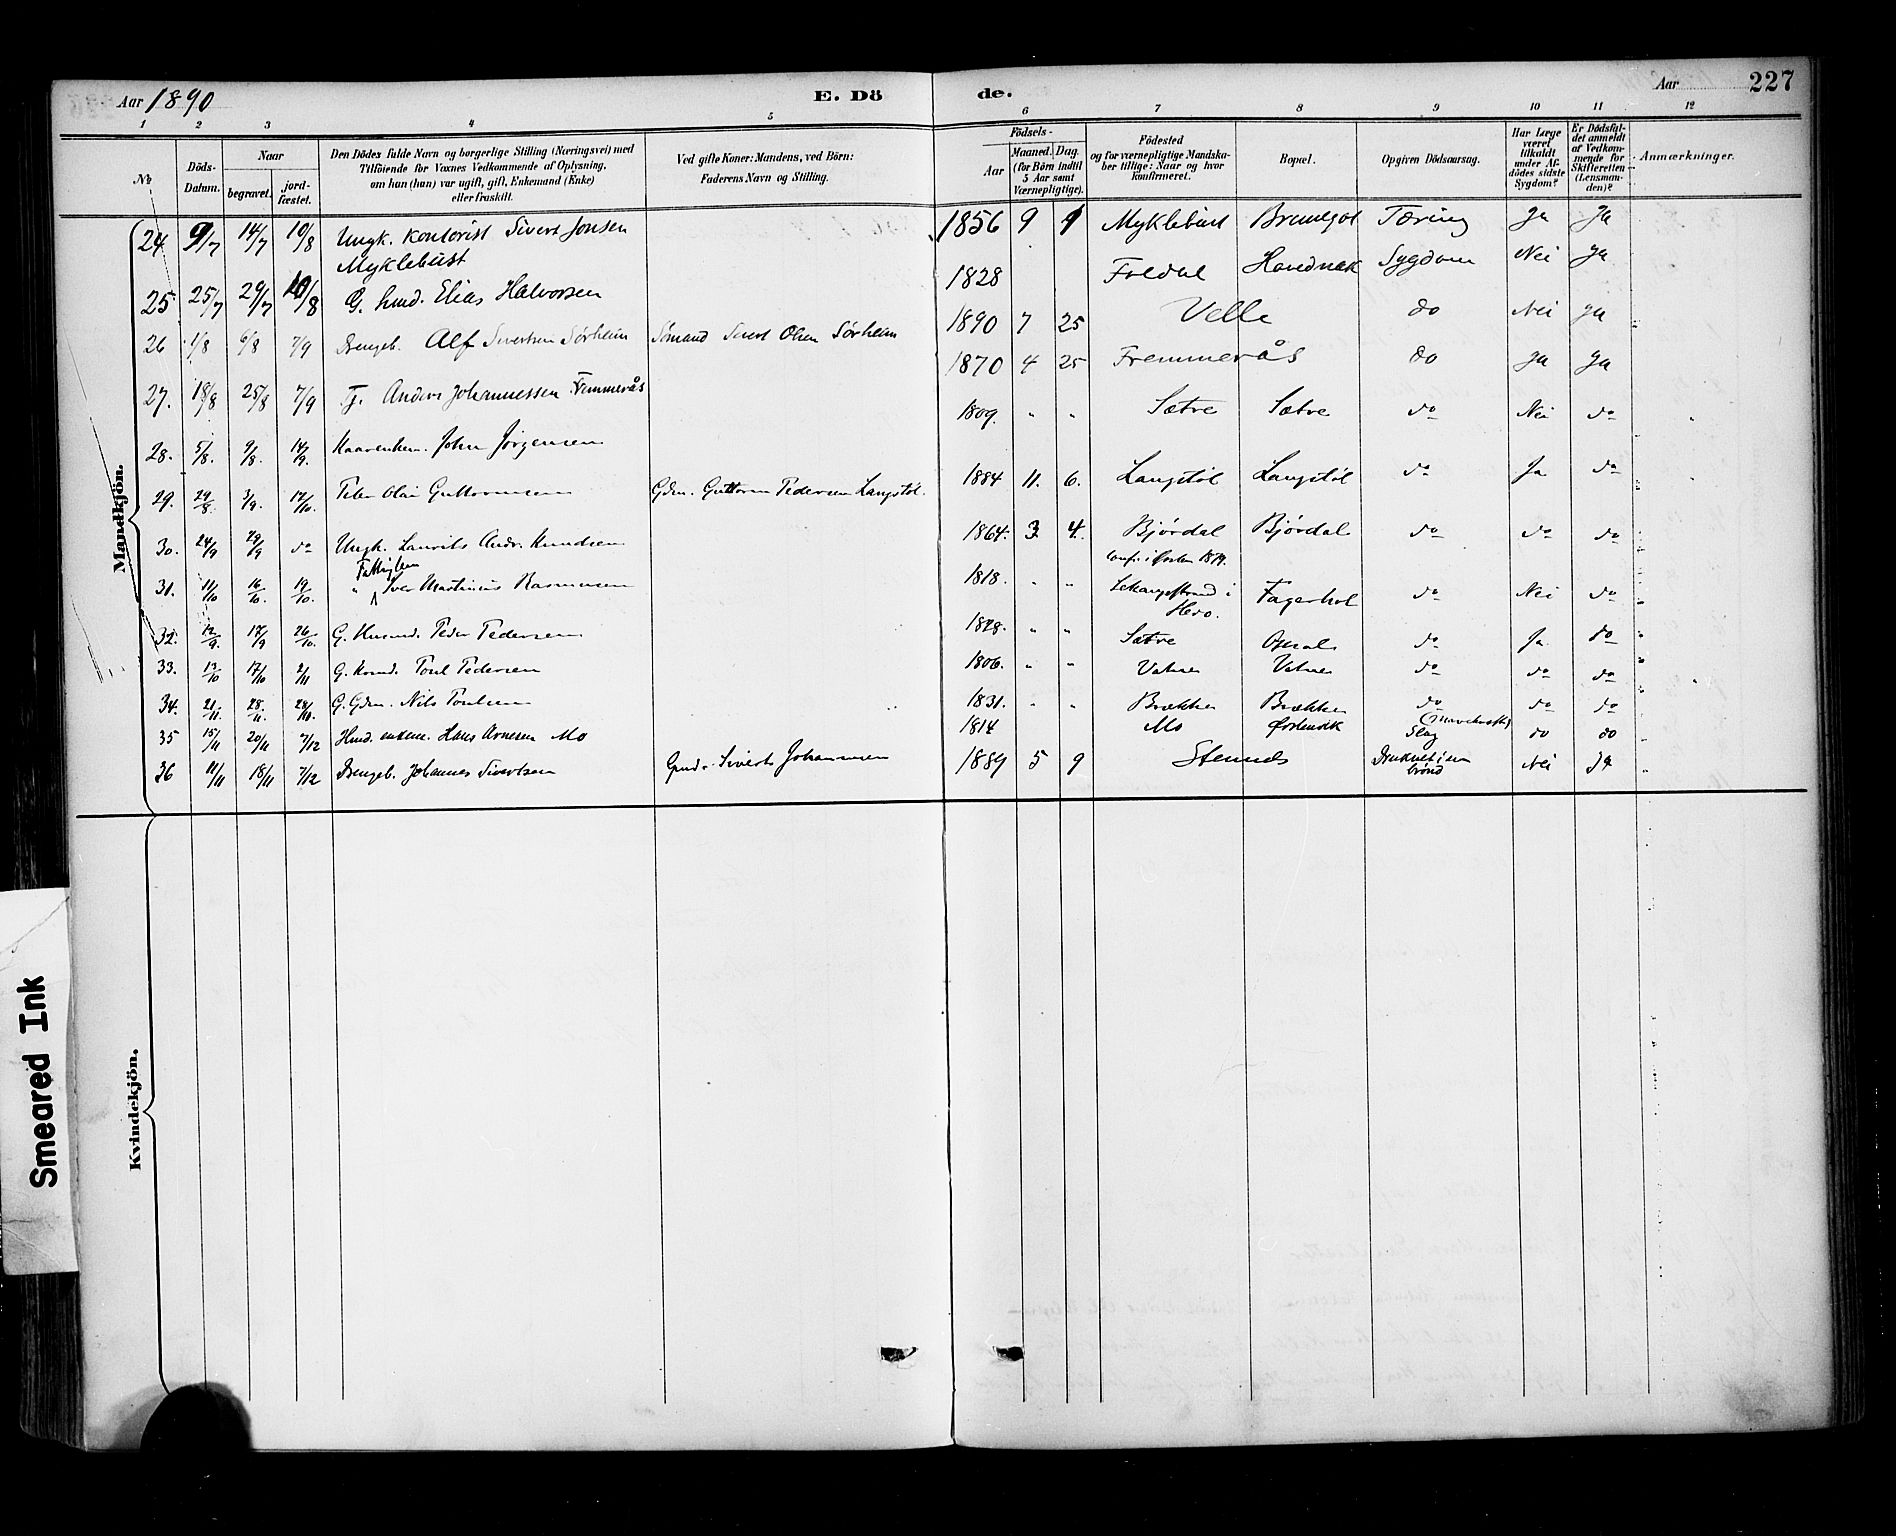 Aar 1890
E. Dö
de.
Aar
227
1 2 3 4 5 6 7 8 9 10 11 12
No
Döds-
Datum.
Naar
begravet.
jord-
fæstet.
Den Dödes fulde Navn og borgerlige Stilling (Næringsvei) med
Tilföiende for Voxnes Vedkommende af Oplysning,
om han (hun) var ugift, gift, Enkemand (Enke)
eller fraskilt.
Ved gifte Koner: Mandens, ved Börn:
Faderens Navn og Stilling.
Födsels-
Aar
Maaned. Dag.
(for Börn indtil
5 Aar samt
Værnepligtige).
Födested
og for værnepligtige Mandska-
ber tillige: Naar og hvor
konfirmeret.
Bopæl.
Opgiven Dödsaarsag.
Har Læge
været
tilkaldt
under Af-
dödes sidste
Sygdom?
Er Dödsfal-
det anmeldt
af Vedkom-
mende for
Skifteretten
(Lensman-
den)?
Anmærkninger.
Mandkjön.
24 9/7 14/7 10/8 Ungk. Kontorist Sivert Jonsen 1856 9 1 Myklebust Tæring Ja Ja
Myklebust
25 25/7 29/7 10/8 G. Husd. Elias Halvorsen 1828 Foldal Sygdom Nei Ja
26 1/8 6/8 7/9 Drengeb. Alf Sivertsen Sörheim Sömand Sivert Olsen Sörheim 1890 7 25 Velle do Nei Ja
27. 18/8 25/8 7/9 Tj. Anders Johannessen Fremmerås 1870 4 25 Fremmerås do Ja Ja
28. 5/8. 9/8. 14/9. John Jörgensen 1809. " " Sætre Sætre do Nei do
29. 29/8 3/9. 12/10. Peder Olai Guttormsen Gdm. Guttorm Pedersen Langstöl. 1884 11. 6. Langstöl Langstöl do Ja do
30. 24/9 29/9 do Ungk. Laurits Andr. Knudsen 1864. 3. 4. Björdal Björdal do do do
conf. i Örsten 1879.
Fattiglem
31. 11/10 16/10. 19/10. " Iver Martinus Rasmussen 1818. " " i Fagerhol do Nei do
Herö.
32. 12/9. 17/9 26/10. G. Peder Pedersen 1828. " " Sætre do Ja do
33. 12/10 17/10 2/11 G. Poul Pedersen 1806. " " Vatne Vatne do do do
34. 21/11. 28/11. 28/11. G. Gdm. Nils Poulsen 1831. " " Brækken Brækken do do do
35 15/11 20/11 7/12 Husd. enkem. Hans Arnesen Mo 1814 Mo Örstenvik Slag do do
36 11/11 18/11 7/12 Drengeb. Johannes Sivertsen Sivert Johannesen 1889 5 9 Stennes Druknet i en Nei Ja
brönd
Kvindekjön.
Smeared Ink